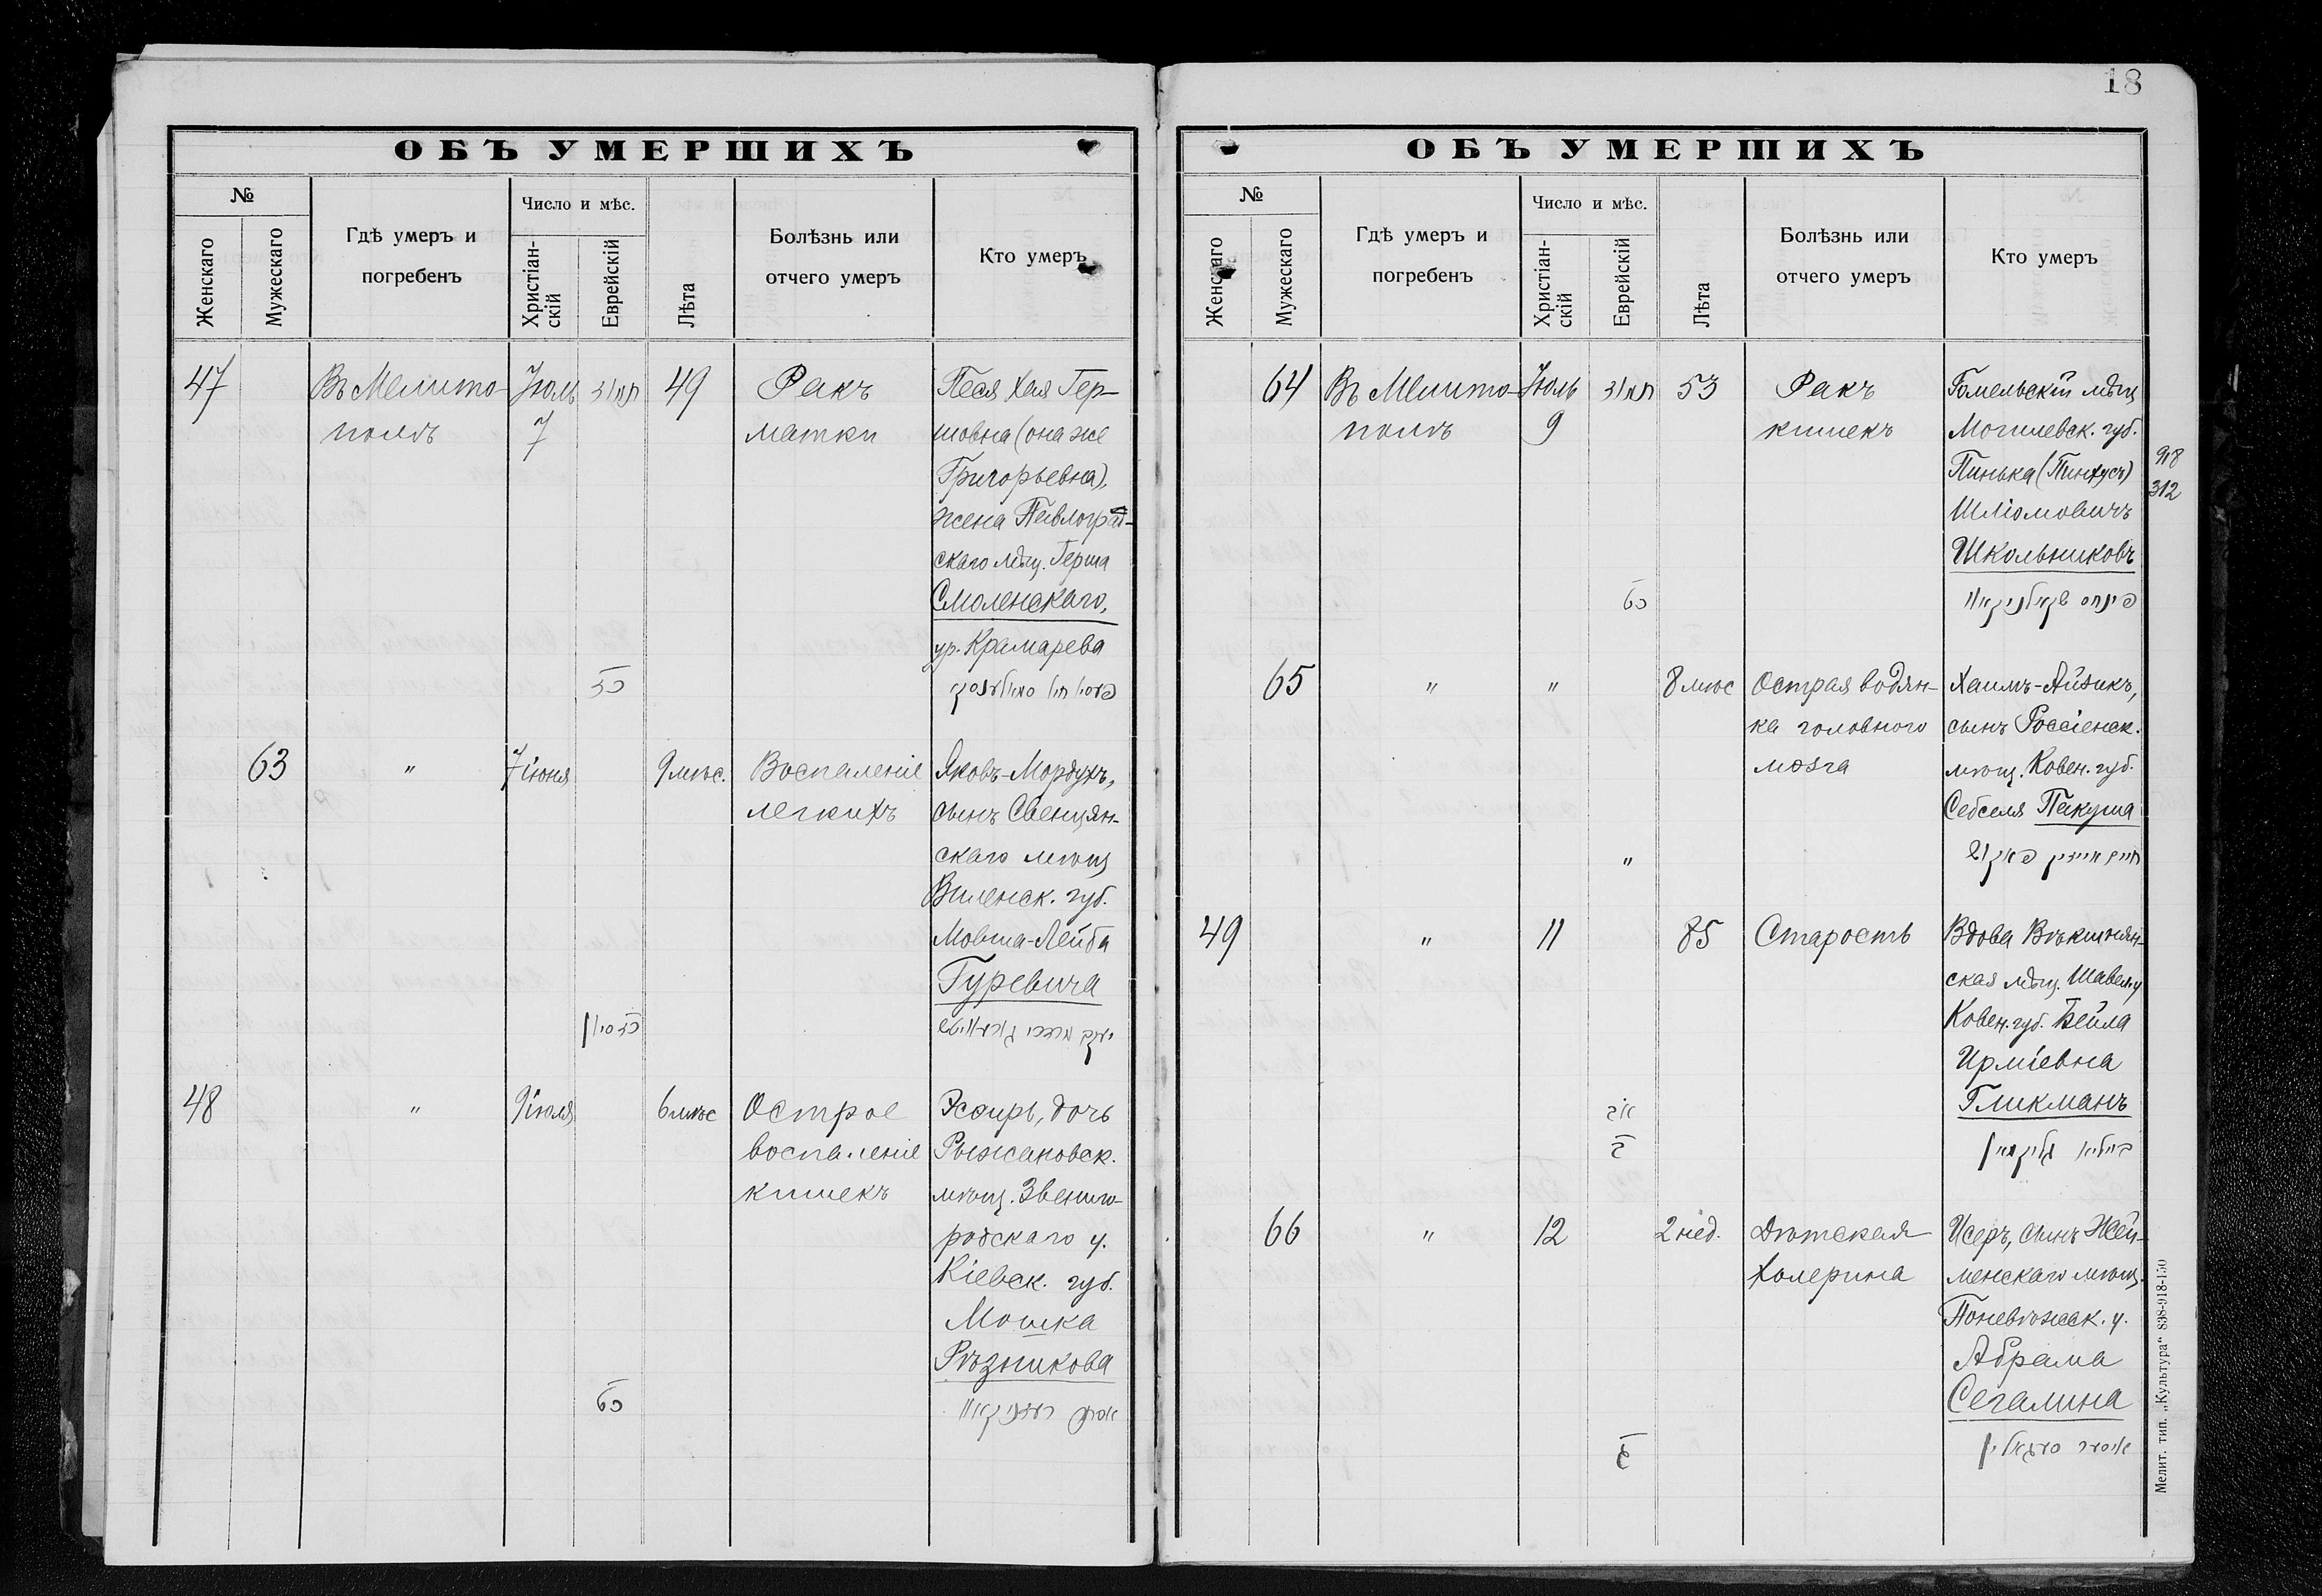 18
ОБЪ УМЕРШИХЪ
№
Женскаго
Мужескаго
Гдѣ умеръ и
погребенъ
Число и мѣс.
Христіан-
скій
Еврейскій
Лѣта
Болѣзнь или
отчего умеръ
Кто умеръ
47
Въ Мелито-
полѣ
Іюль
7
תמוז
49
Ракъ
матки
Песя Хая Гер-
шовна (она же
Григорьевна),
жена Павлоград-
скаго мѣщ. Герша
Смоленскаго,
ур. Крамарева
63
"
7 іюня
9 мѣс.
Воспаленіе
легкихъ
Яковъ-Мордухъ,
сынъ Свенцян-
скаго мѣщ
Виленск. губ.
Мовша-Лейба
Гуревича
48
"
9 іюля
6 мѣс
Острое
воспаленіе
кишекъ
Эсѳирь, дочь
Рыжановск.
мѣщ. Звениго-
родскаго у.
Кіевск. губ.
Мошка
Рѣзникова
ОБЪ УМЕРШИХЪ
№
Женскаго
Мужескаго
Гдѣ умеръ и
погребенъ
Число и мѣс.
Христіан-
скій
Еврейскій
Лѣта
Болѣзнь или
отчего умеръ
Кто умеръ
64
Въ Мелито-
полѣ
Іюль
9
תמוז
53
Ракъ
кишекъ
Гомельскій мѣщ
Могилевск. губ.
Пинька (Пинхусъ)
Шліомовичъ
Школьниковъ
918
312
65
"
"
8 мѣс
Острая водян-
ка головного
мозга
Хаимъ-Айзикъ,
сынъ Россіенск.
мѣщ. Ковен. губ.
Себселя Пакуша
"
49
"
11
85
Старость
Вдова Вѣкшнян-
ская мѣщ. Шавел. у
Ковен. губ. Бейла
Ирміевна
Гликманъ
66
"
12
2 нед.
Дѣтская
холерина
Исеръ, сынъ Жей-
менскаго мѣщ.
Поневѣжск. у.
Абрама
Сегалина
Мелит. тип. „Культура“ 838-918-150